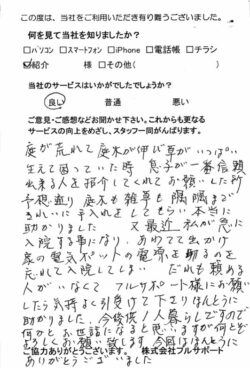 この度は、当社をご利用いただき有り難うございました。
何を見て当社を知りましたか？
□パソコン □スマートフォン □iPhone □電話帳 □チラシ
☑紹介 様 □その他( )
当社のサービスはいかがでしたでしょうか？
良い 普通 悪い
ご意見・ご感想などお聞かせ下さい。これからも更なる
サービスの向上をめざし、スタッフ一同がんばります。
庭が荒れて庭木が伸び草がいっぱい
生えて困っていた時 息子が一番信頼
出来る人を紹介してくれてお願いした所
予想通り庭木も雑草も隅隅まで
きれいに手入れをしてもらい本当に
助かりました 又最近 私が急に
入院する事になり、あわてて出かけ
家の電気ポットの電源を切るのを
忘れて入院してしまい だれも頼める
人がいなくて フルサポート様にお願い
したら気持よく引受けて下さりほんとうに
助かりました。今後供1人暮らしですので
何かとお世話になると思いますが何とぞ
よろしくお願い致します 今回はほんとうに
ありがとうございました
ご協力ありがとうございます。 株式会社フルサポート